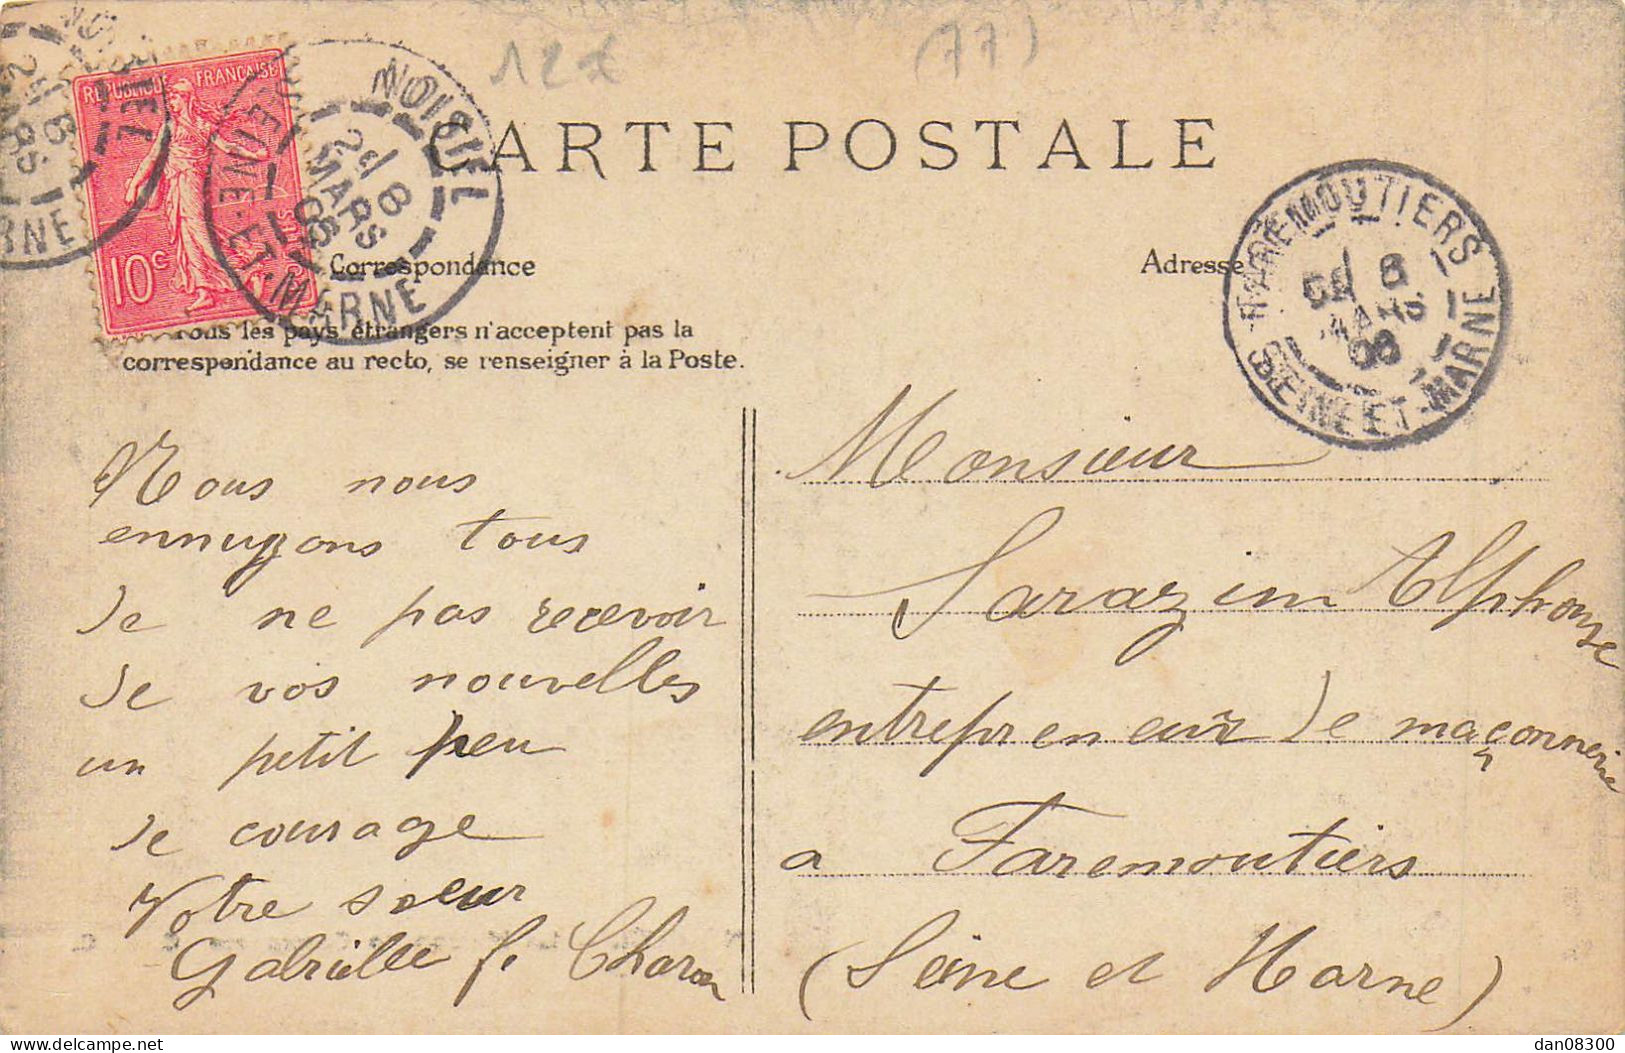 12€
(77)
CARTE POSTALE
REPUBLIQUE FRANCAISE
10c
NOISIEL
SEINE-ET-MARNE
2d 8
MARS
06
Correspondance
Adresse
FAREMOUTIERS
8
MARS
06
SEINE-ET-MARNE
Tous les pays étrangers n'acceptent pas la
correspondance au recto, se renseigner à la Poste.
Nous nous
ennuyons tous
de ne pas recevoir
de vos nouvelles
un petit peu
de courage
Votre sœur
Gabrielle f. Charon
Monsieur
Sarazin Alphonse
entrepreneur de maçonnerie
a Faremoutiers
(Seine et Marne)
dan08300